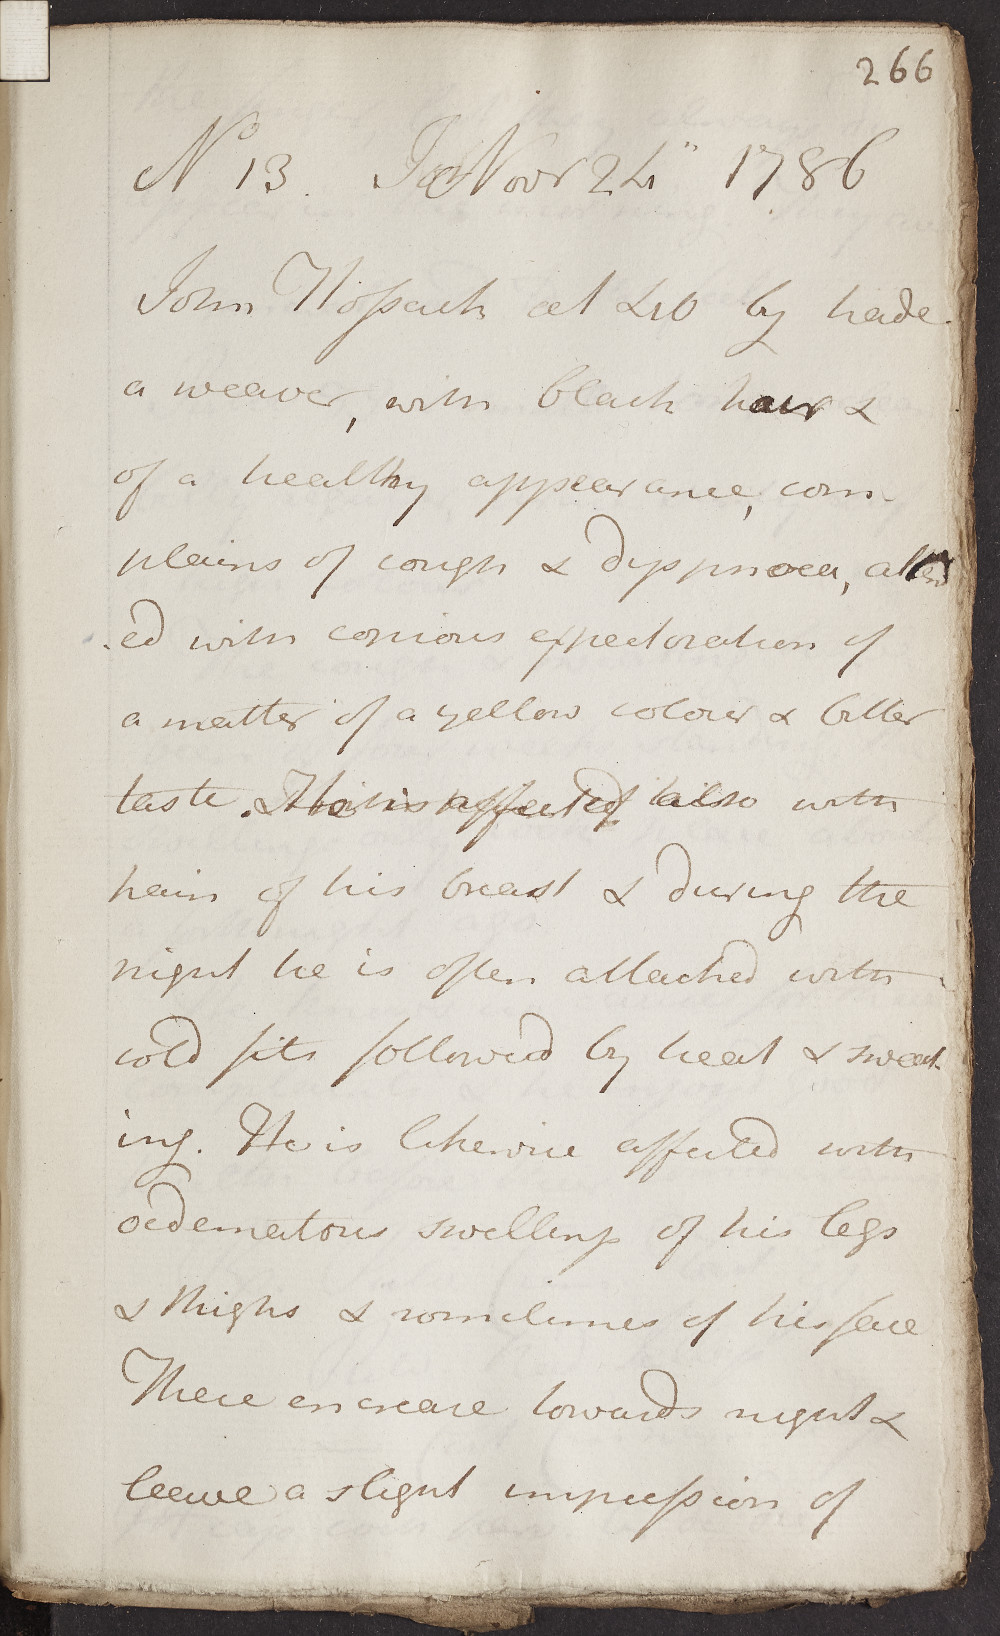 266
No 13. Novr 24" 1786
John Hossack æt 40 by trade
a weaver, with black hair &
of a healthy appearance, com-
plains of cough & dyspnœa, attend
ed with copious expectoration of
a matter of a yellow colour & bitter
taste. He is affected also with
pain of his breast & during the
night he is often attacked with
cold fits followed by heat & sweat-
ing. He is likewise affected with
œdematous swellings of his legs
& thighs & sometimes of his face
These encrease towards night &
leave a slight impression of